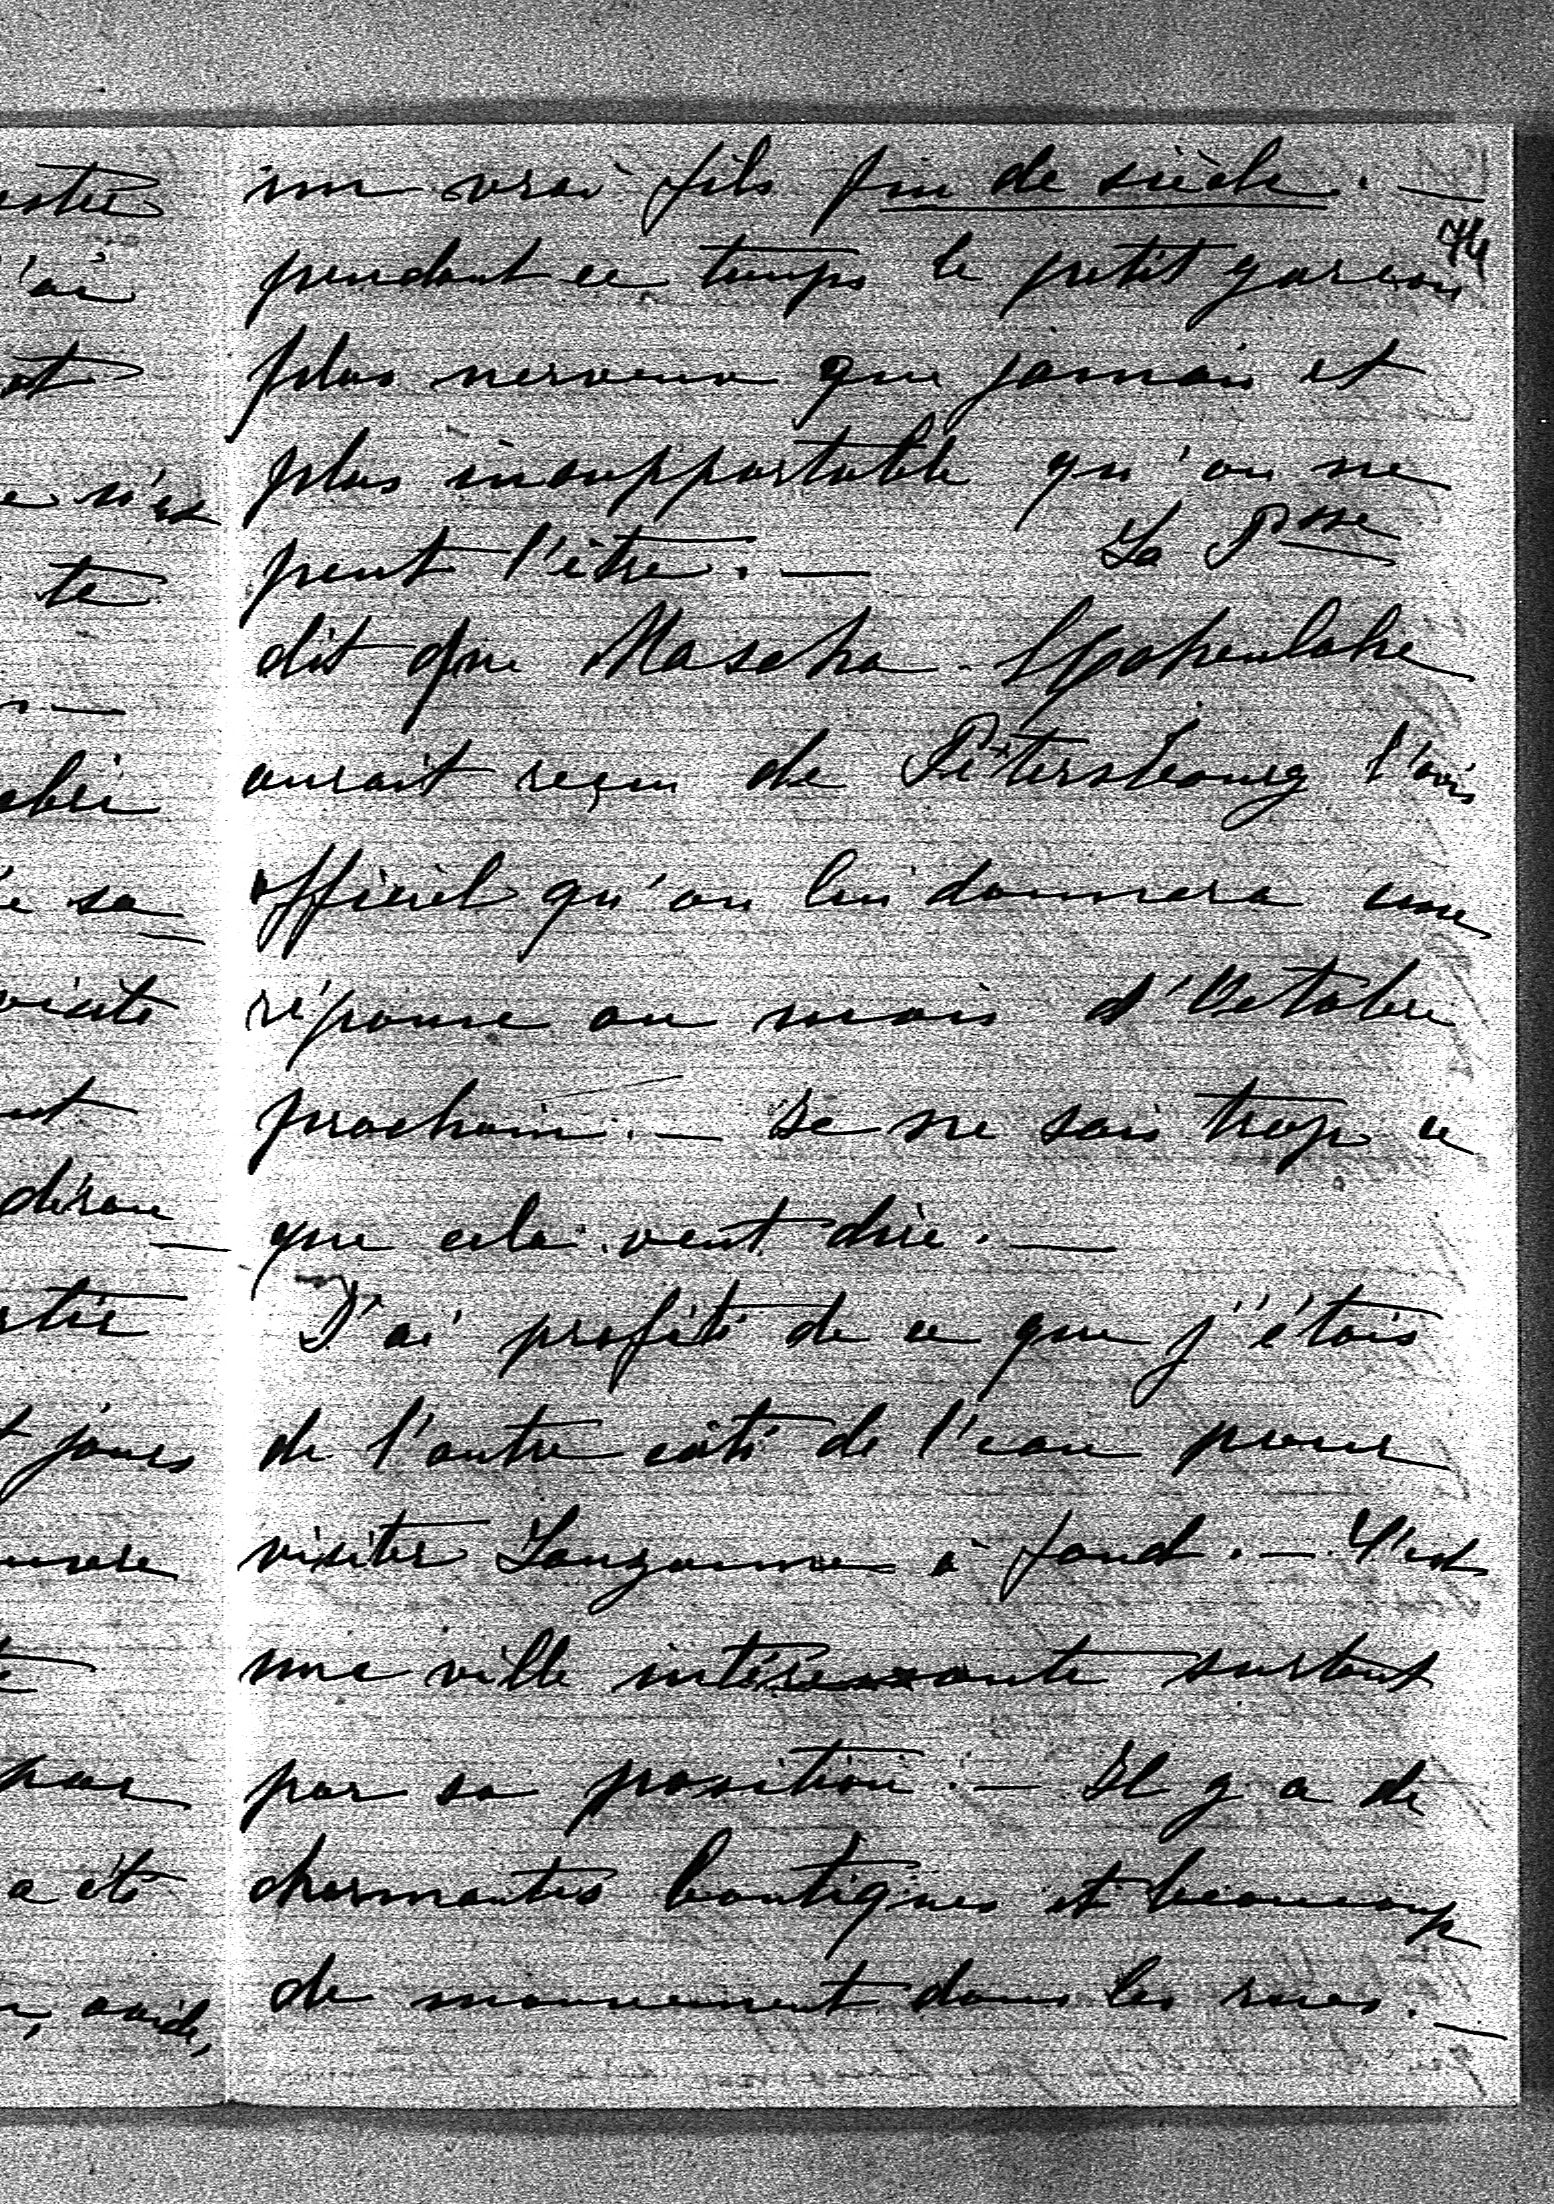 un vrai fils fin de siècle. —
74
pendant ce temps le petit garçon
plus nerveux que jamais et
plus insupportable qu'on ne
peut l'être. — La Psse
dit que Mascha
aurait reçu de Pétersbourg l'avis
officiel qu'on lui donnera une
réponse au mois d'Octobre
prochain. — Je ne sais trop ce
que cela veut dire. —
J'ai profité de ce que j'étais
de l'autre côté de l'eau pour
visiter Lauzanne à fond. — C'est
une ville intéressante surtout
par sa position. — Il y a de
charmantes boutiques et beaucoup
de mouvement dans les rues. —